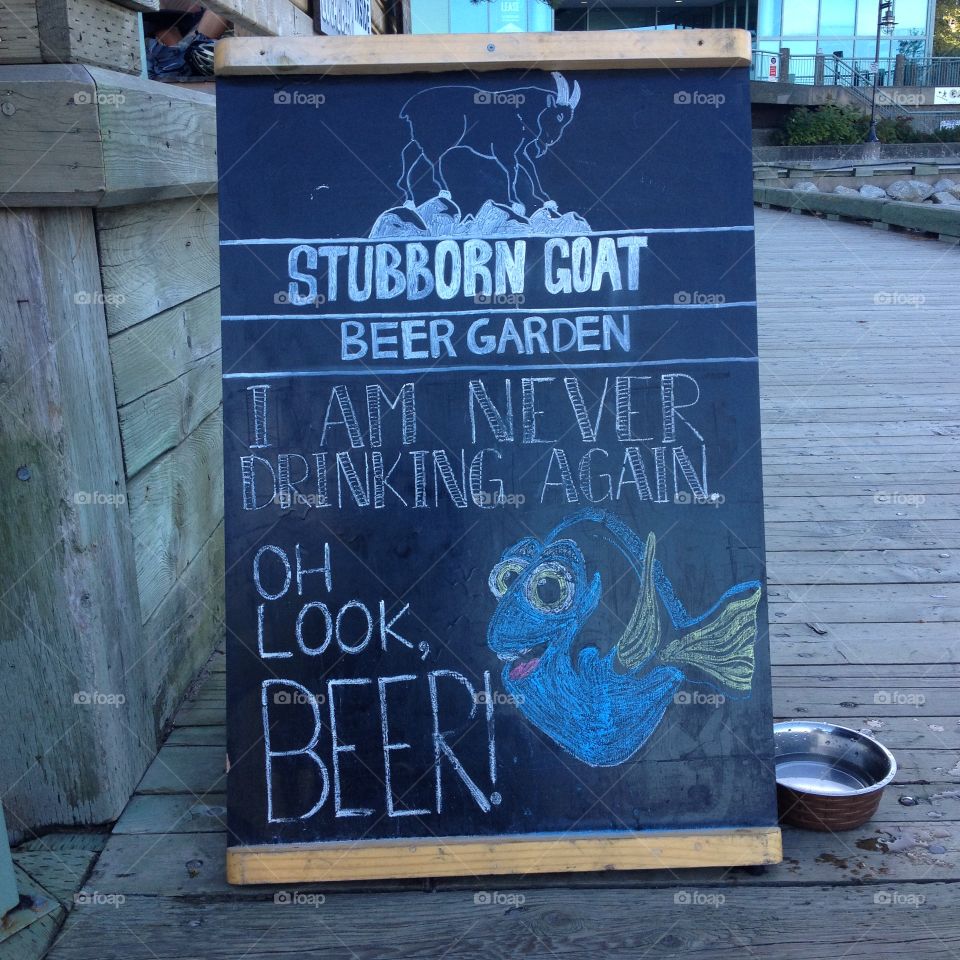 STUBBORN GOAT
BEER GARDEN
I AM NEVER
DRINKING AGAIN.
OH
LOOK,
BEER!
LEASE
foap